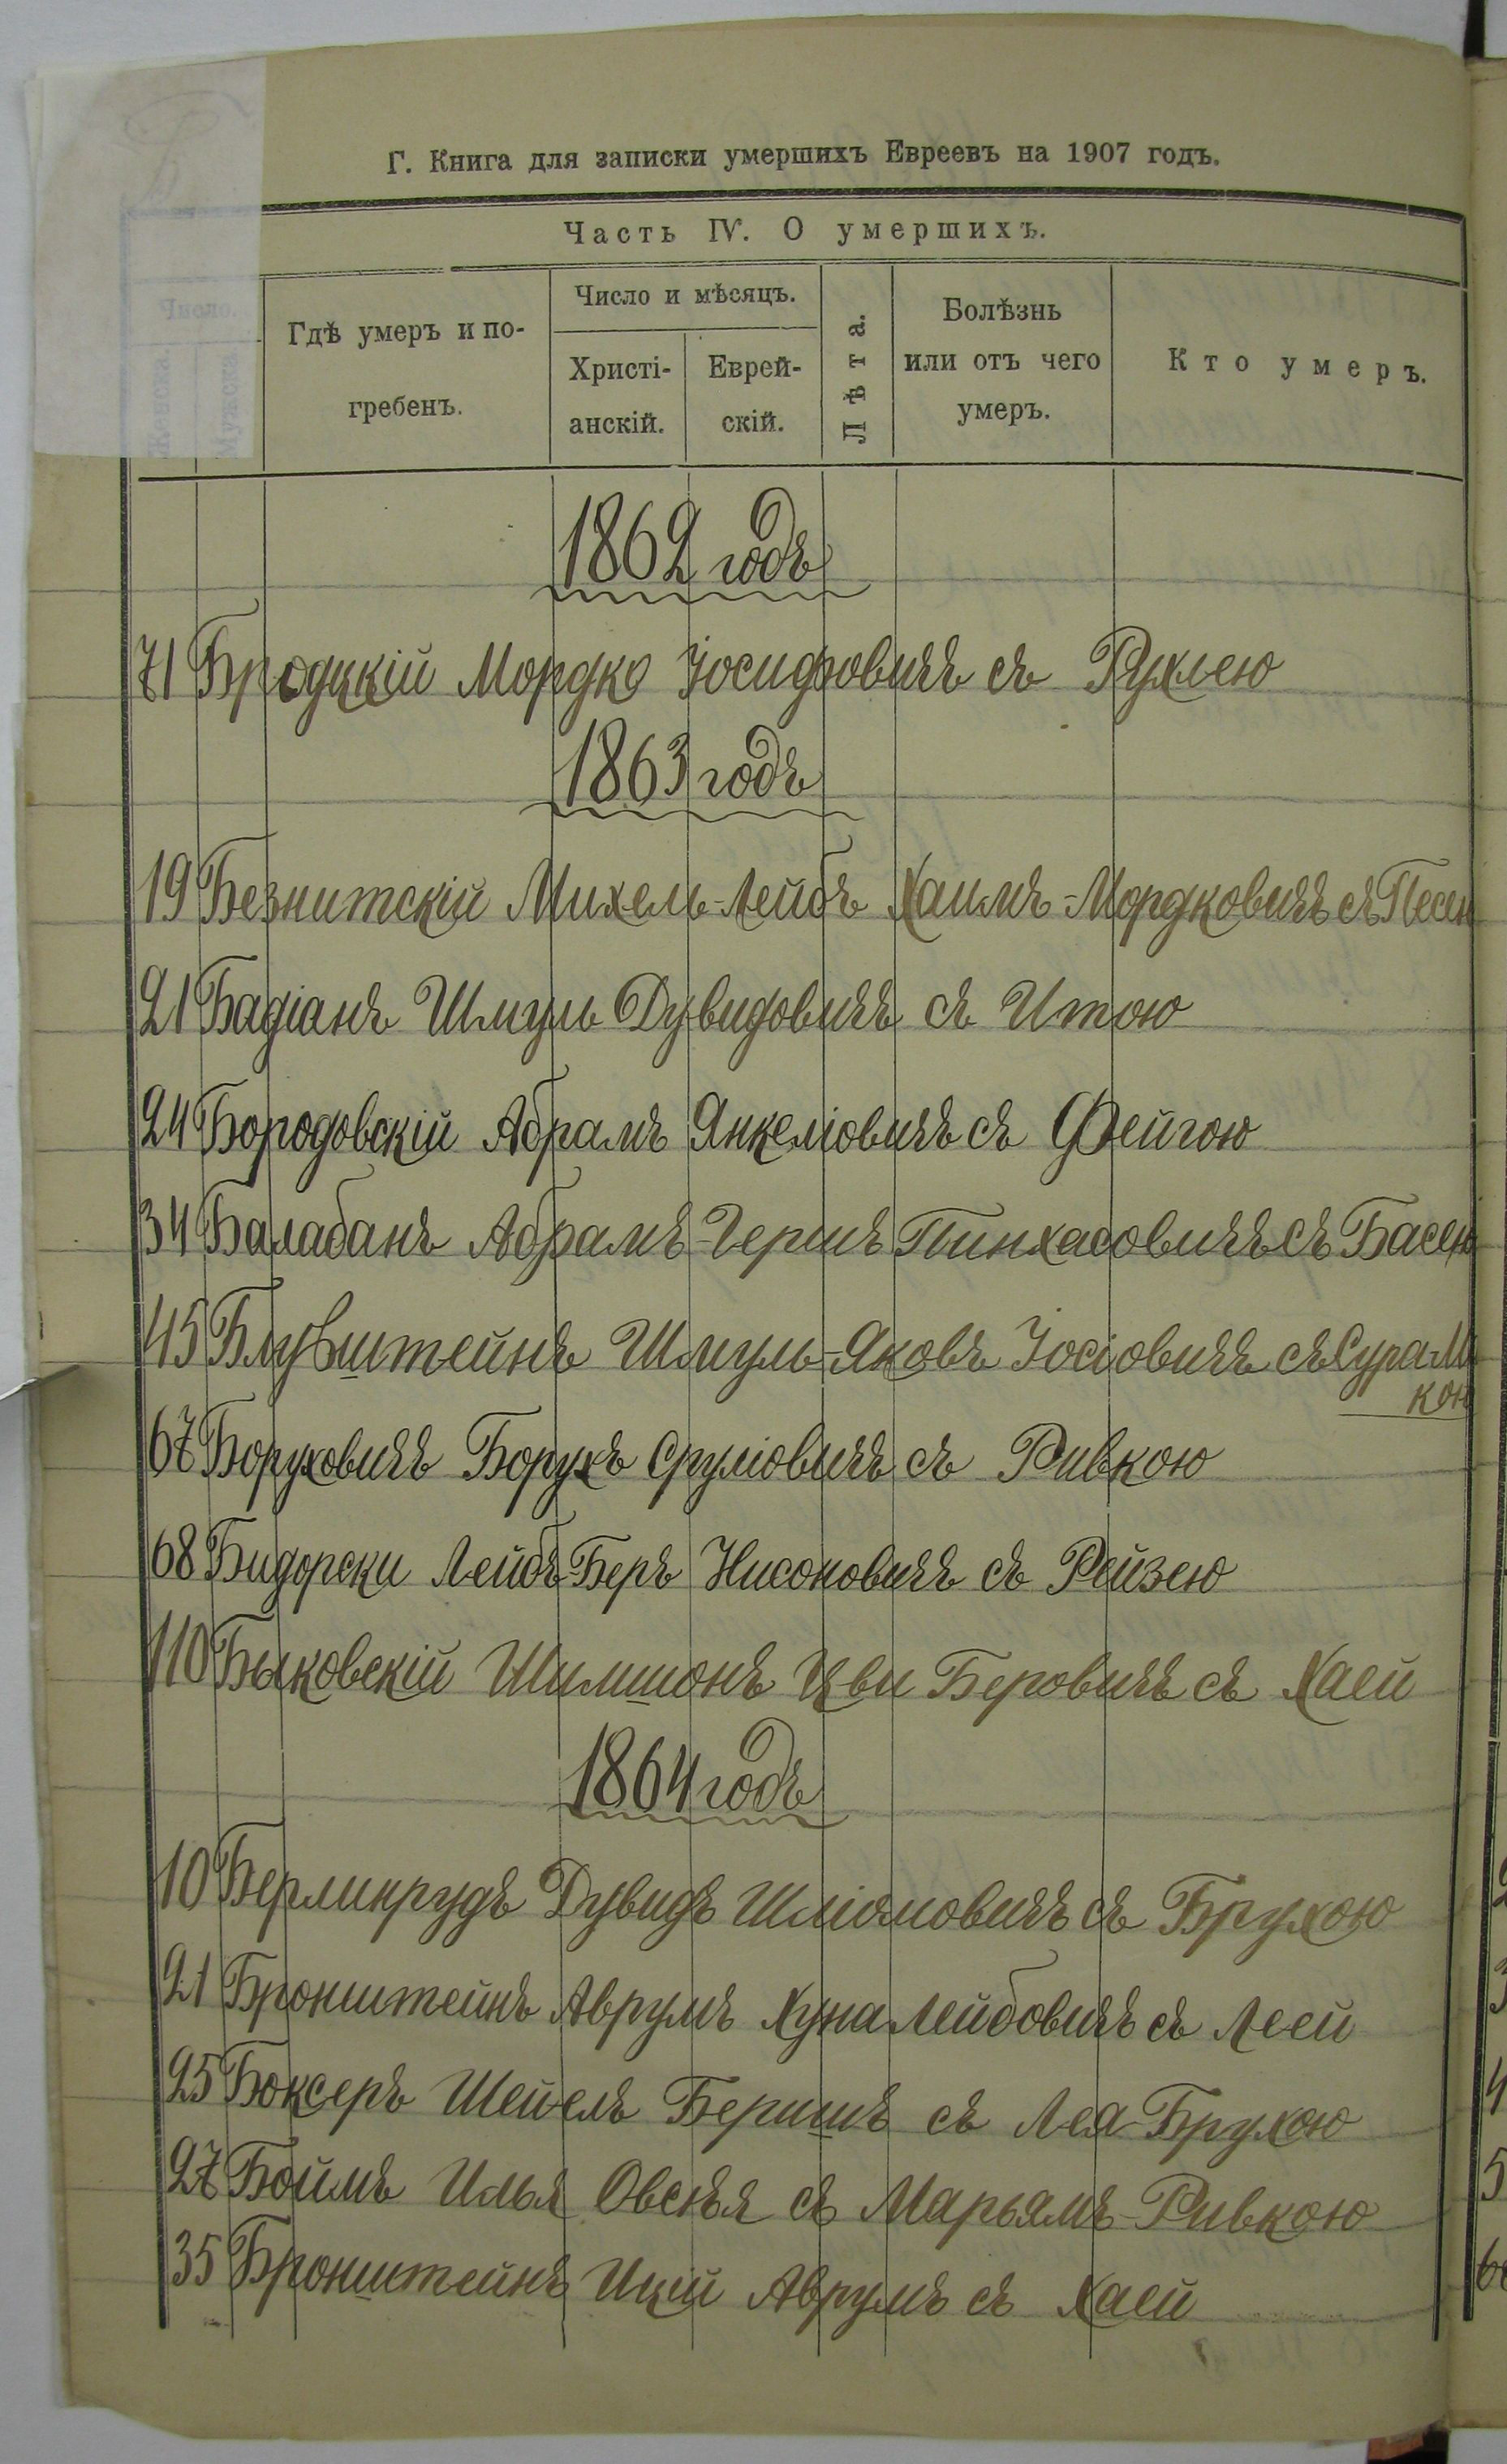 Б
Г. Книга для записки умершихъ Евреевъ на 1907 годъ.
Часть IV. О умершихъ.
Число.
Мужска
Гдѣ умеръ и погребенъ.
Число и мѣсяцъ.
Христіанскій.
Еврейскій.
Лѣта.
Болѣзнь или отъ чего умеръ.
Кто умеръ.
1862 годъ
71 Бродцкій Мордко Іосифовичъ съ Рухлею
1863 годъ
19 Безнитскій Михель-Лейбъ Хаимъ-Мордковичъ съ Песею
21 Бадіанъ Шмуль Дувидовичъ съ Итою
24 Бородовскій Абрамъ Янкеліовичъ съ Фейгою
34 Балабанъ Абрамъ-Гершъ Пинхасовичъ съ Басею
45 Блувштейнъ Шмуль-Яковъ Іосіовичъ съ Сура М
кою
67 Боруховичъ Борухъ Сруліовичъ съ Ривкою
68 Бидорски Лейбъ-Беръ Нисоновичъ съ Рейзею
110 Быковскій Шимшонъ Цви Беровичъ съ Хаей
1864 годъ
10 Берлинрудъ Дувидъ Шліомовичъ съ Брухою
21 Бронштейнъ Аврумъ Хуна Лейбовичъ съ Леей
25 Боксеръ Шейелъ Беришъ съ Лея-Брухою
27 Боймъ Илья Овсѣя съ Марьямъ-Ривкою
35 Бронштейнъ Ицій Аврумъ съ Хаей